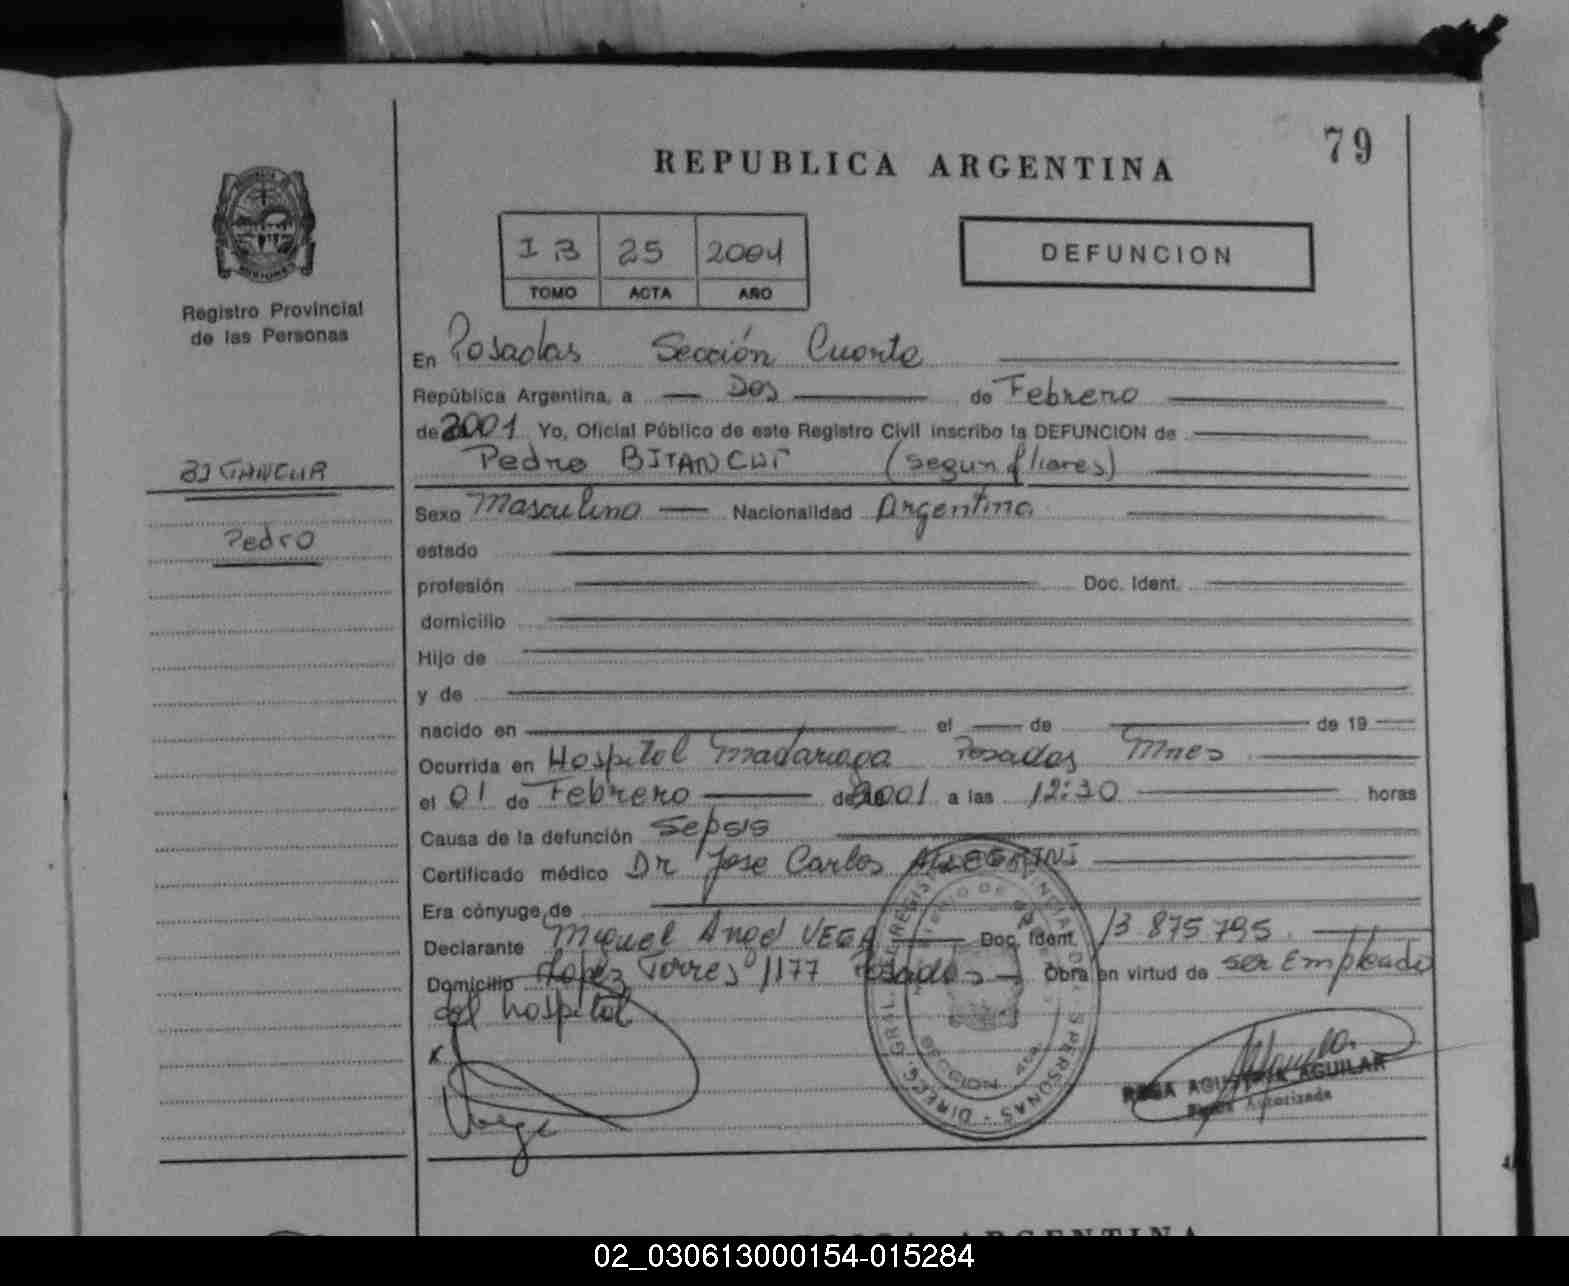 79
REPUBLICA ARGENTINA
I B 25 2001
TOMO ACTA AÑO
DEFUNCION
Registro Provincial
de las Personas
En Posadas Sección Cuarta
República Argentina, a Dos de Febrero
de 2001 Yo, Oficial Público de este Registro Civil inscribo la DEFUNCION de
BITANCUR
Pedro BITANCUR (segun fliares)
Sexo Masculino Nacionalidad Argentina
Pedro
estado
profesión Doc. Ident.
domicilio
Hijo de
y de
nacido en el de de 19
Ocurrida en Hospital Madariaga Posadas Mnes
el 01 de Febrero de 2001 a las 12:30 horas
Causa de la defunción Sepsis
Certificado médico Dr Jose Carlos ALLEGRINI
Era cónyuge de
Declarante Miguel Angel VEGA Doc. Ident. 13 875 795
Domicilio Lopez Torres 1177 Posadas Obra en virtud de ser Empleado
del hospital
x
Vega
ROSA AGUILAR
Firma Autorizada
02_030613000154-015284